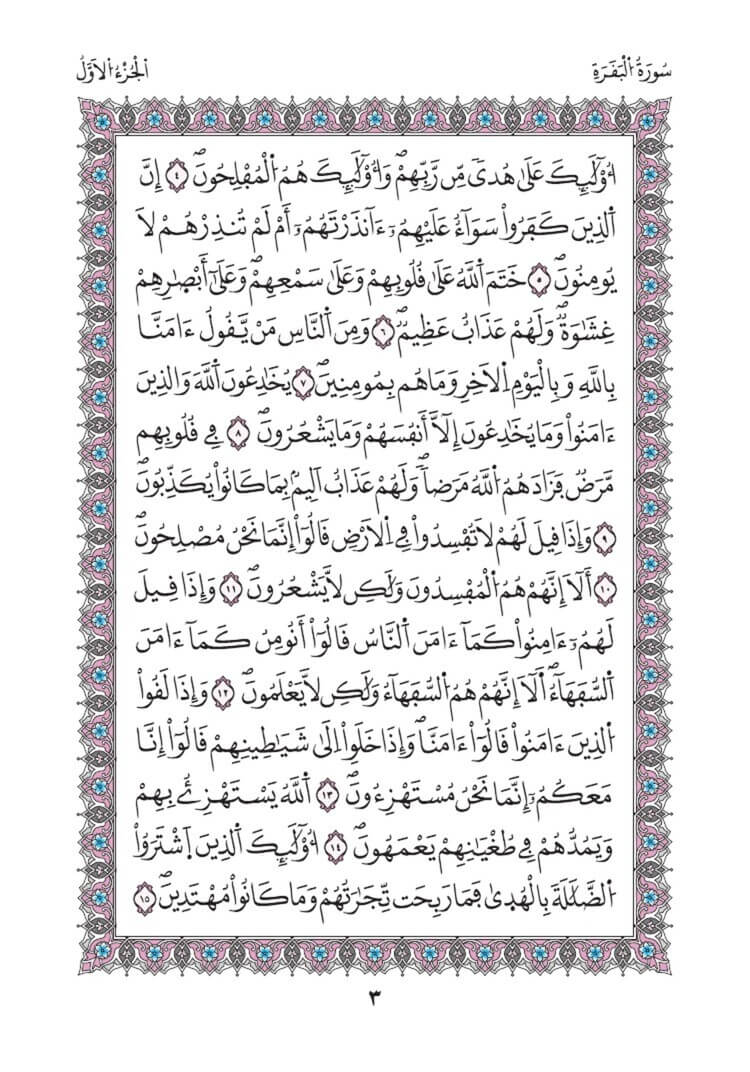 سُورَةُ الْبَقَرَةِ
الجُزْءُ الاَوَّلُ
أُوْلَٰٓئِكَ عَلَىٰ هُدىٗ مِّن رَّبِّهِمْۖ وَأُوْلَٰٓئِكَ هُمُ اُ۬لْمُفْلِحُونَۖ ٤ إِنَّ
اَ۬لذِينَ كَفَرُواْ سَوَآءٌ عَلَيْهِمُۥٓ ءَآنذَرْتَهُمُۥٓ أَمْ لَمْ تُنذِرْهُمْ لَا
يُومِنُونَۖ ٥ خَتَمَ اَ۬للَّهُ عَلَىٰ قُلُوبِهِمْ وَعَلَىٰ سَمْعِهِمْۖ وَعَلَىٰٓ أَبْصٰ۪رِهِمْ
غِشَٰوَةٞۖ وَلَهُمْ عَذَابٌ عَظِيمٞۖ ٦ وَمِنَ اَ۬لنَّاسِ مَنْ يَّقُولُ ءَامَنَّا
بِاللَّهِ وَبِالْيَوْمِ اِ۬لَاخِرِ وَمَا هُم بِمُومِنِينَۖ ٧ يُخَٰدِعُونَ اَ۬للَّهَ وَالذِينَ
ءَامَنُواْ وَمَا يُخَٰدِعُونَ إِلَّآ أَنفُسَهُمْ وَمَا يَشْعُرُونَۖ ٨ فِے قُلُوبِهِم
مَّرَضٞ فَزَادَهُمُ اُ۬للَّهُ مَرَضاٗۖ وَلَهُمْ عَذَابٌ اَلِيمُۢ بِمَا كَانُواْ يُكَذِّبُونَۖ
٩ وَإِذَا قِيلَ لَهُمْ لَا تُفْسِدُواْ فِے اِ۬لَارْضِ قَالُوٓاْ إِنَّمَا نَحْنُ مُصْلِحُونَۖ
١٠ أَلَآ إِنَّهُمْ هُمُ اُ۬لْمُفْسِدُونَ وَلَٰكِن لَّا يَشْعُرُونَۖ ١١ وَإِذَا قِيلَ
لَهُمُۥٓ ءَامِنُواْ كَمَآ ءَامَنَ اَ۬لنَّاسُ قَالُوٓاْ أَنُومِنُ كَمَآ ءَامَنَ
اَ۬لسُّفَهَآءُۖ أَلَآ إِنَّهُمْ هُمُ اُ۬لسُّفَهَآءُ وَلَٰكِن لَّا يَعْلَمُونَۖ ١٢ وَإِذَا لَقُواْ
اُ۬لذِينَ ءَامَنُواْ قَالُوٓاْ ءَامَنَّاۖ وَإِذَا خَلَوِاْ اِلَىٰ شَيَٰطِينِهِمْ قَالُوٓاْ إِنَّا
مَعَكُمُۥٓ إِنَّمَا نَحْنُ مُسْتَهْزِءُونَۖ ١٣ اَ۬للَّهُ يَسْتَهْزِۓُ بِهِمْ
وَيَمُدُّهُمْ فِے طُغْيَٰنِهِمْ يَعْمَهُونَۖ ١٤ أُوْلَٰٓئِكَ اَ۬لذِينَ اَ۪شْتَرَوُاْ
اُ۬لضَّلَٰلَةَ بِالْهُد۪ىٰ فَمَا رَبِحَت تِّجَٰرَتُهُمْ وَمَا كَانُواْ مُهْتَدِينَۖ ١٥
٣